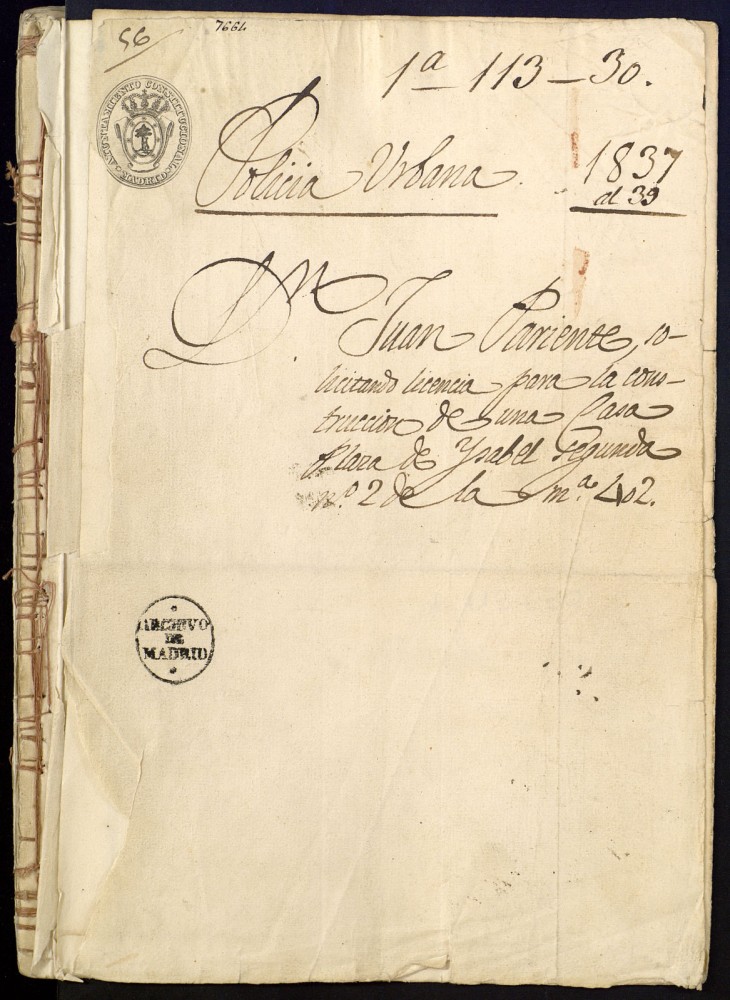 56
7664
1ª 113-30.
AYUNTAMIENTO CONSTITUCIONAL DE MADRID
Policia Urbana.
1837
al 39
Dn. Juan Pariente, so-
licitando licencia para la cons-
truccion de una Casa
Plaza de Ysabel Segunda
nº. 2 de la mª. 402.
ARCHIVO
DE
MADRID